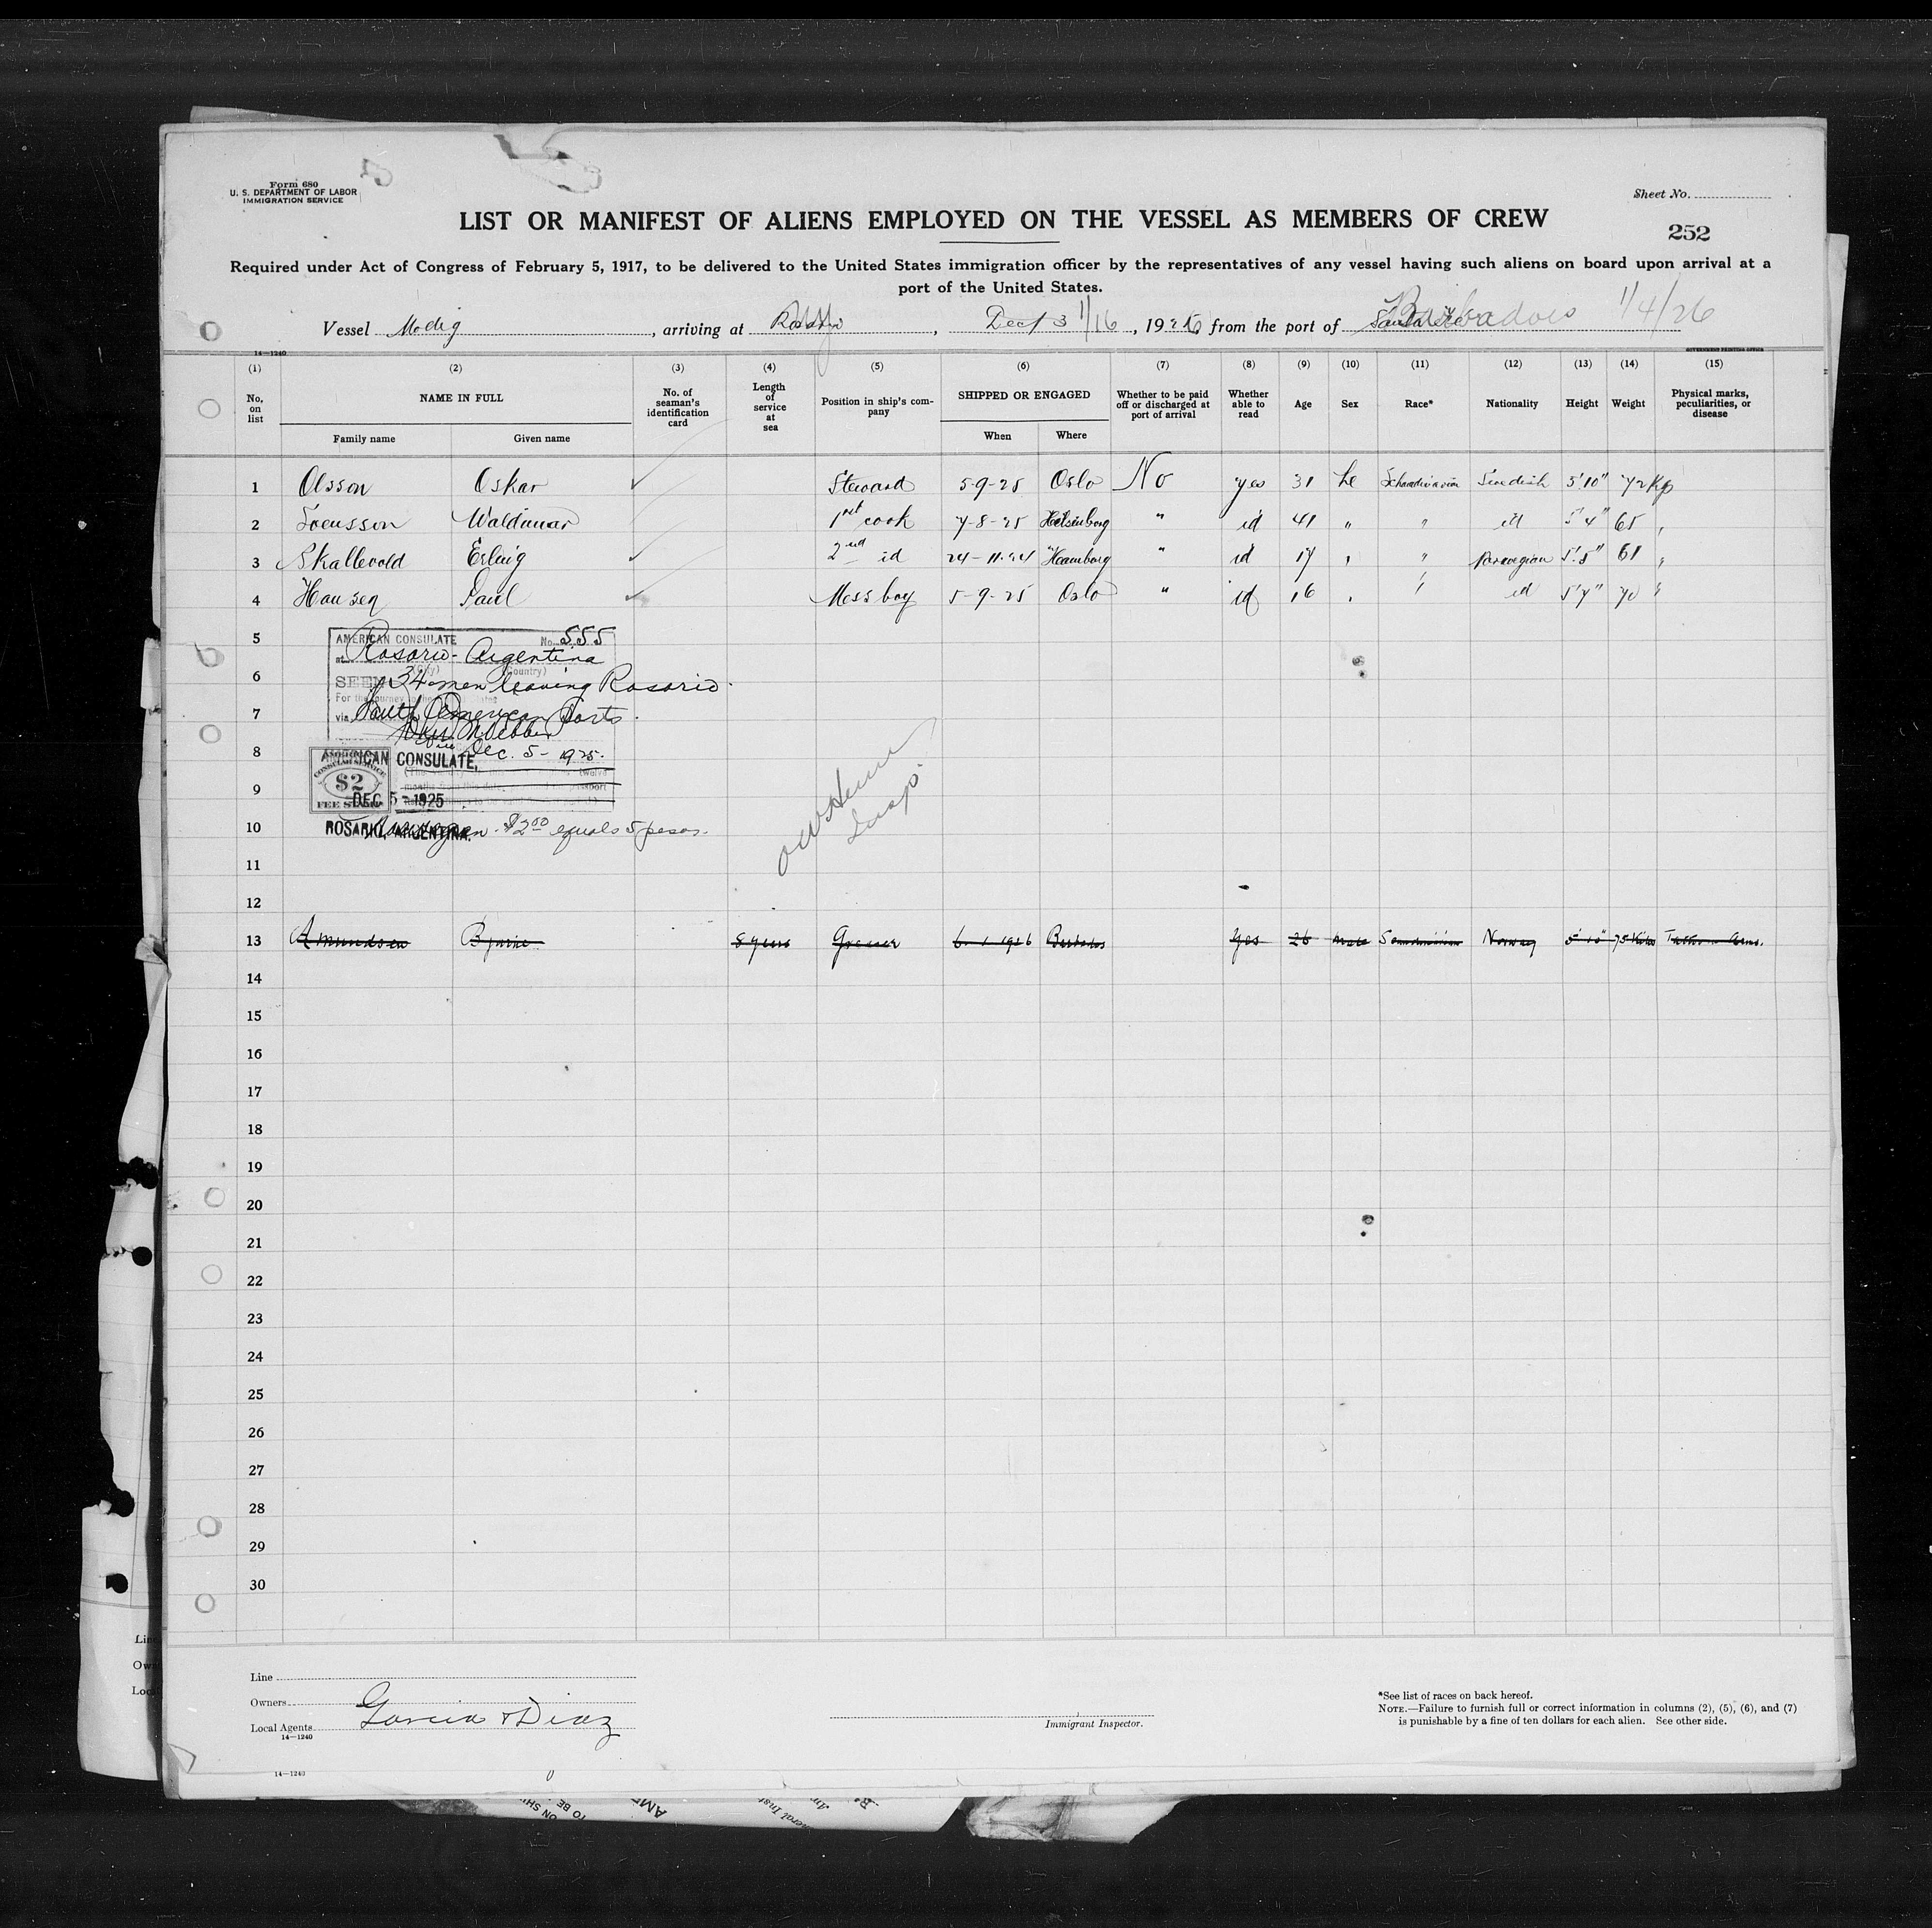 Form 680
U. S. DEPARTMENT OF LABOR
IMMIGRATION SERVICE
Sheet No.
LIST OR MANIFEST OF ALIENS EMPLOYED ON THE VESSEL AS MEMBERS OF CREW
252
Required under Act of Congress of February 5, 1917, to be delivered to the United States immigration officer by the representatives of any vessel having such aliens on board upon arrival at a
port of the United States.
Vessel Modig, arriving at , Dec 3 1/16, 1926 from the port of Barbados 1/4/26
14—1240
GOVERNMENT PRINTING OFFICE
(1) (2) (3) (4) (5) (6) (7) (8) (9) (10) (11) (12) (13) (14) (15)
No. on list NAME IN FULL No. of seaman's identification card Length of service at sea Position in ship's company SHIPPED OR ENGAGED Whether to be paid off or discharged at port of arrival Whether able to read Age Sex Race* Nationality Height Weight Physical marks, peculiarities, or disease
Family name Given name When Where
1 Olsson Oskar Steward 5-9-25 Oslo No yes 31 he Schandinavian Swedish 5'10" 72 Kg
2 Svensson Waldimar 1st cook 7-8-25 Helsinborg " id 41 " " id 5'4" 65 "
3 Skallevold Erling 2nd id 24-11-24 Hamburg " id 17 " " Norwegian 5'5" 61 "
4 Hansen Paul Mess boy 5-9-25 Oslo " id 16 " " id 5'7" 70 "
5
6
7
8
9
10
11
12
AMERICAN CONSULATE No. 555
at Rosario - Argentina
(City) (Country)
SEEN 34 men leaving Rosario
For the journey to the United States
via South American Ports.
Dec. 5 - 1925.
AMERICAN CONSULATE,
CONSULAR SERVICE
$2
FEE STAMP
DEC 5 - 1925
ROSARIO, ARGENTINA.
$2.00 equals 5 pesos.
Insp.
13 Amundsen Bjarne 8 years Greaser 6-1-1926 Barbados Yes 26 male Scandinavian Norway 5'10" 75 Kilos Tattoo on arms.
14
15
16
17
18
19
20
21
22
23
24
25
26
27
28
29
30
Line
Owners
Local Agents Garcia & Diaz
14—1240
Immigrant Inspector.
*See list of races on back hereof.
NOTE.—Failure to furnish full or correct information in columns (2), (5), (6), and (7)
is punishable by a fine of ten dollars for each alien. See other side.
14—1240